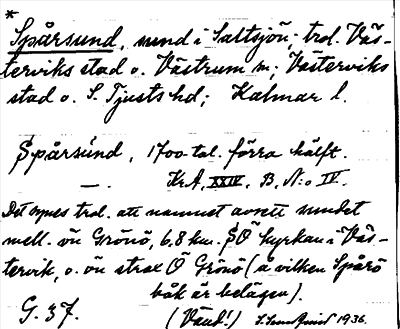 *
Spårsund, sund i Saltsjön; trol. Väs-
terviks stad o. Västrum sn; Västerviks
stad o. S. Tjusts hd; Kalmar l.
Spårsund, 1700-tal. förra hälft.
—. Kr.A, XXIV, B, N:o IV.
Det synes trol. att namnet avsett sundet
mell. ön Grönö, 6,8 km. SÖ kyrkan i Väs-
tervik, o. ön strax Ö Grönö (å vilken Spårö
båk är belägen).
G. 37. (Vänd!) 1936.